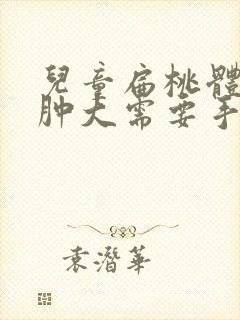 兒童扁桃體
肿大需要手
袁潛華